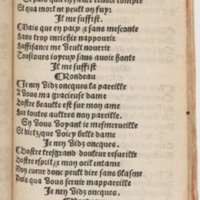 Et qua mort ne peult on fuyr
Je me suffist.
Mais que en paix ⁊ sans mesconte
Sans trop enrichir nappourir
suffisance me veult nourrir
Tousiours ioyeux sans auoir honte
Je me suffist
Rondeau
Je nen vidz oncques la pareille
A vous ma gracieuse dame
Vostre beaulte est sur mon ame
Sur toutes aultres non pareille.
En vous voyant ie mesmerueille
Et dictz que voicy belle dame
Je nen vidz oncques.
Vostre tresgrand doulceur resueille
Vostre esprit ⁊ mon oeil entame
Mon cueur donc peult dire sans blasme
Puis qua vous seruir mappareille
Je nen vidz oncques.